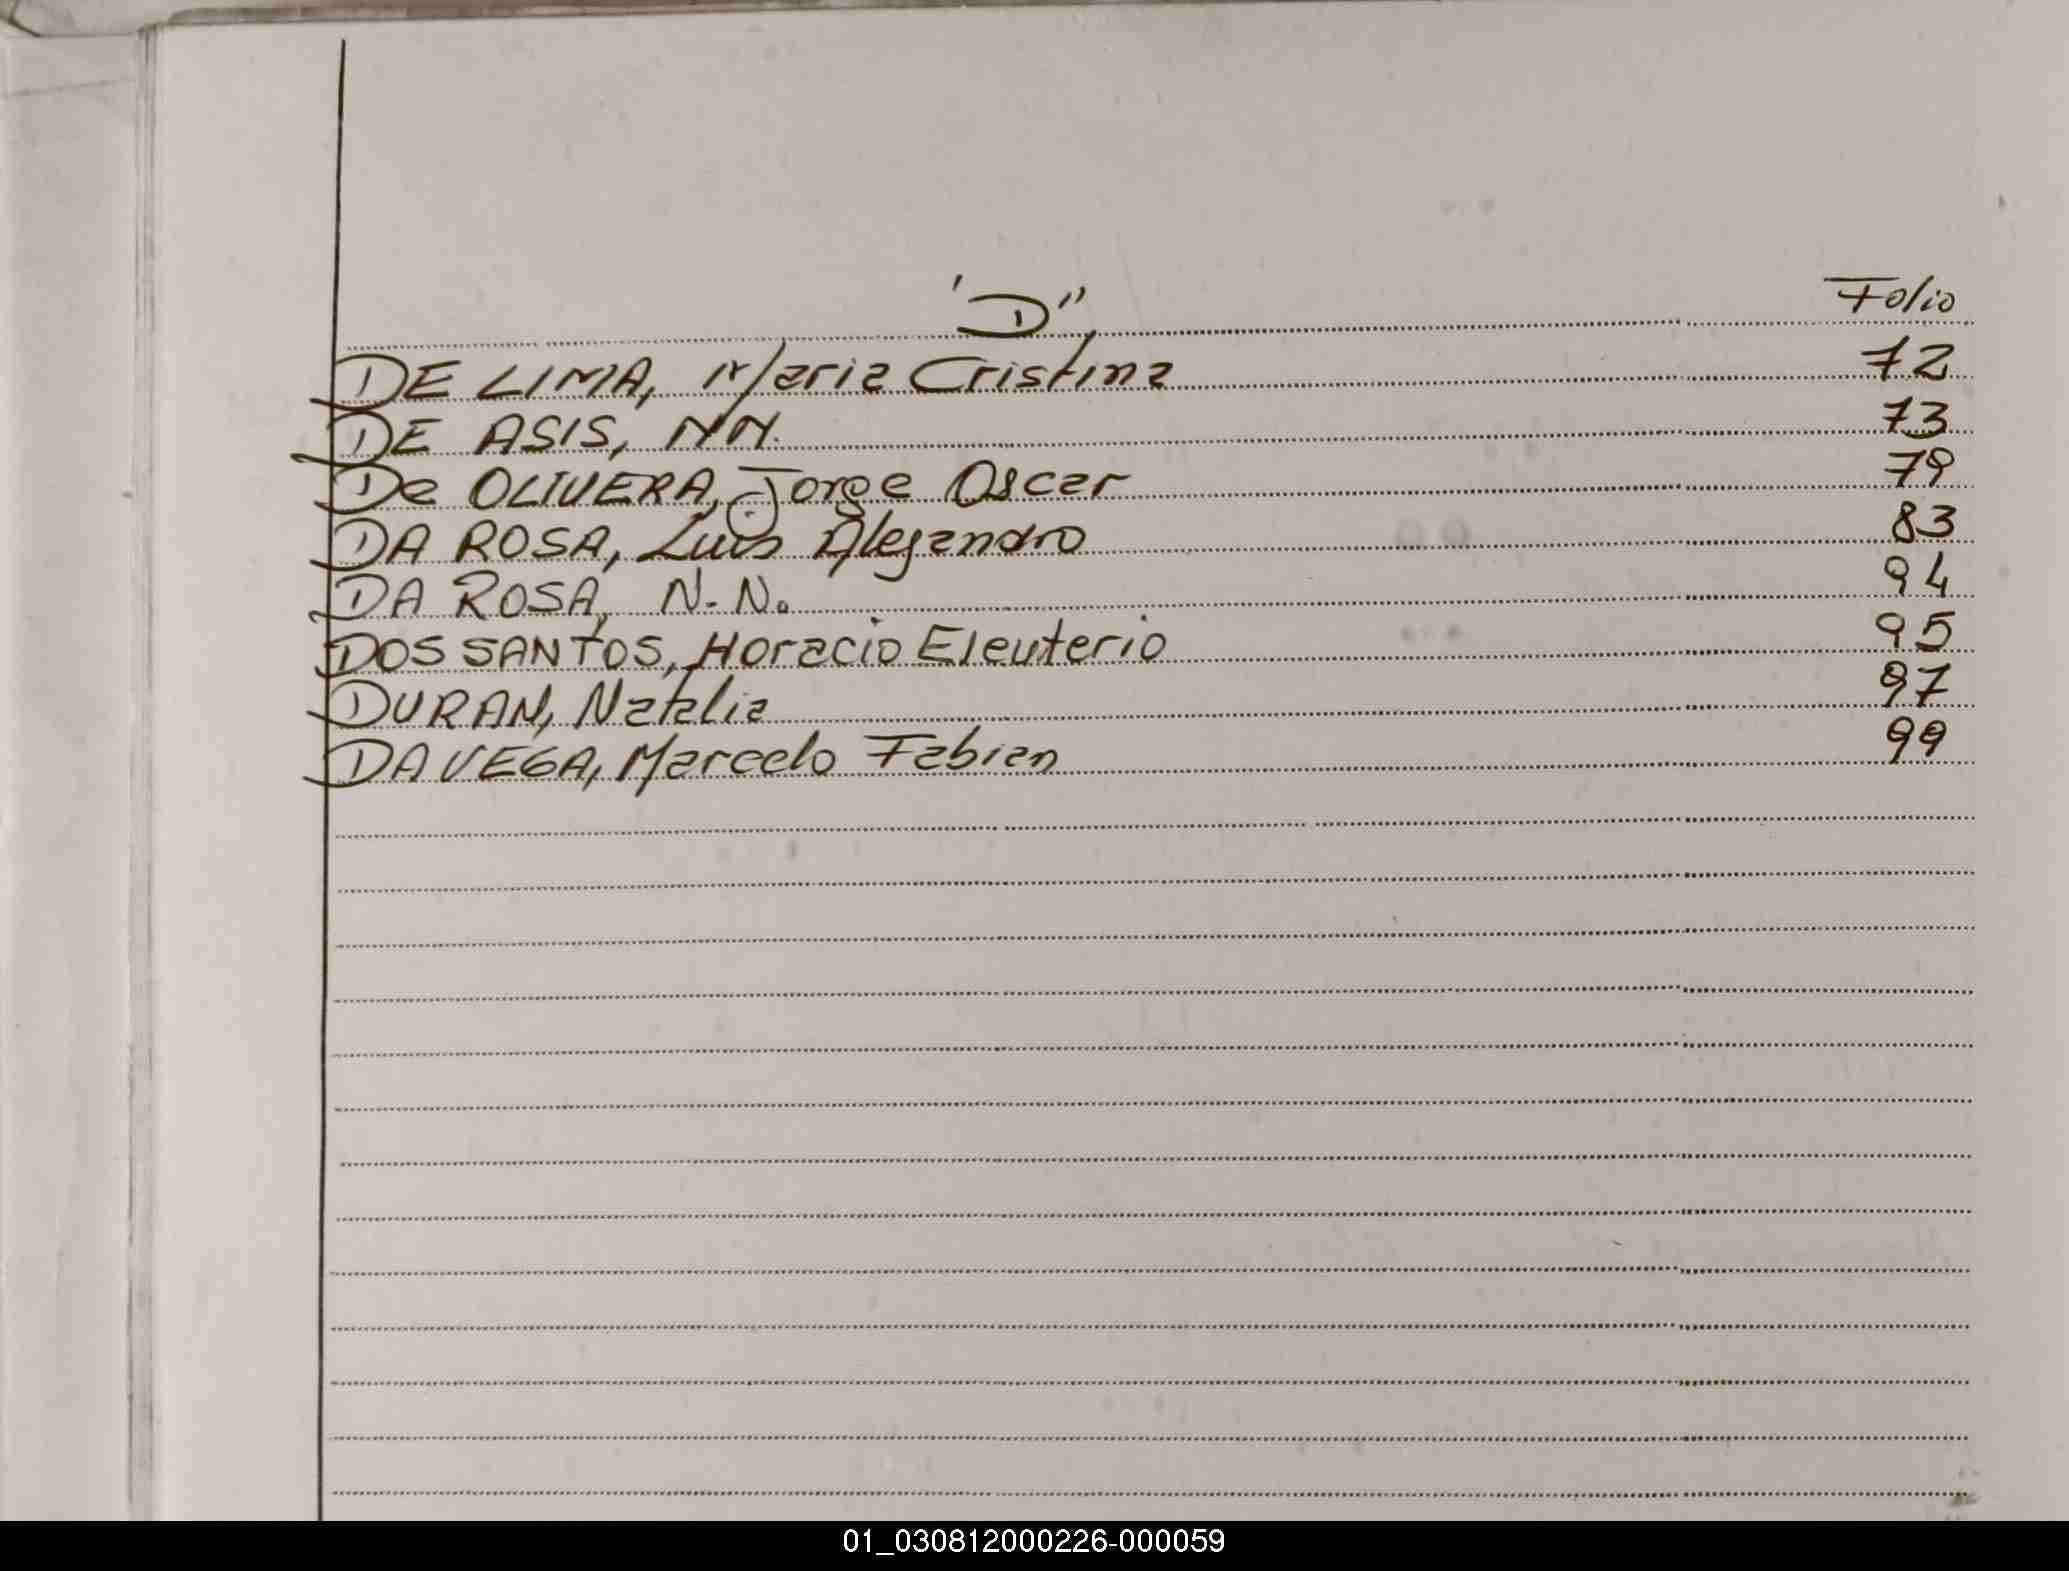 "D" Folio
DE LIMA, Maria Cristina 72
DE ASIS, NN. 73
De OLIVERA, Jorge Oscar 79
DA ROSA, Luis Alejandro 83
DA ROSA, N.N. 94
DOS SANTOS, Horacio Eleuterio 95
DURAN, Natalia 97
DA VEGA, Marcelo Fabian 99
01_030812000226-000059